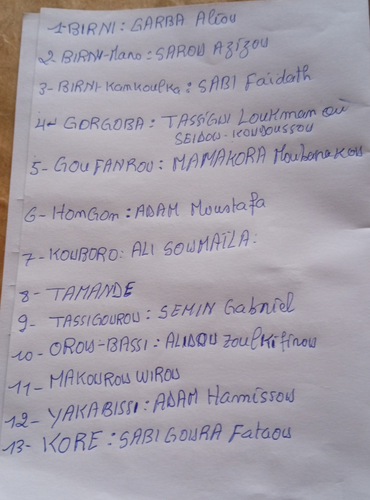 1-BIRNI : GARBA Aliou
2-BIRNI-Maro : SAROU Azizou
3-BIRNI-Kamkoulka : SABI Faïdath
4- GORGOBA : TASSIGUI Loukman où
SEIDOU-KOUDOUSSOU
5-GOUFANROU : MAMAKORA Moubarakou
6-HomGom : ADAM Moustafa
7-KOUBORO : ALI SOUMAÏLA :
8- TAMANDE
9- TASSIGOUROU : SEMIN Gabriel
10-OROU-BASSI : ALIDOU Zoulkifirou
11-MAKOUROU WIROU
12-YAKABISSI : ADAM Hamissou
13-KORE : SABI GOURA Fataou